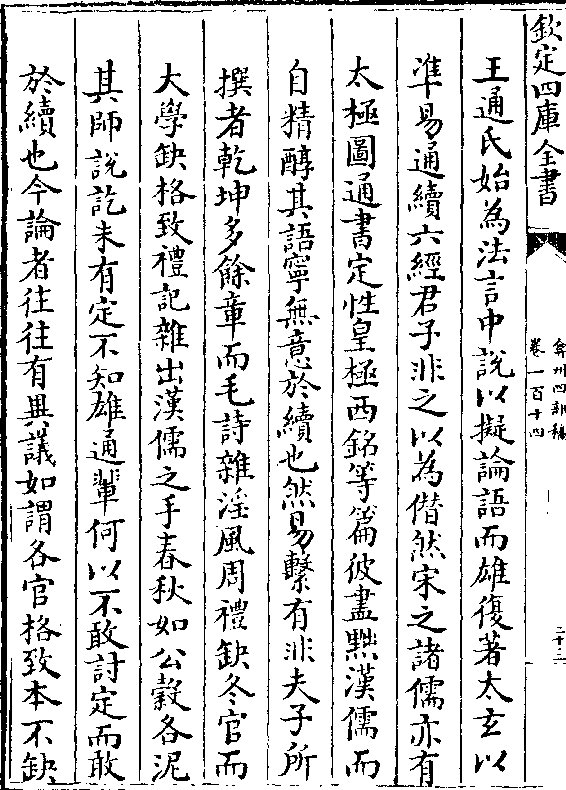 欽定四庫全書
弇州四部稿
卷一百十四
二十三
王通氏始為法言中說以擬論語而雄復著太玄以
準易通續六經君子非之以為僭然宋之諸儒亦有
太極圖通書定性皇極西銘等篇彼盡黜漢儒而
自精醇其語寧無意於續也然易繫有非夫子所
撰者乾坤多餘章而毛詩雜淫風周禮缺冬官而
大學缺格致禮記雜出漢儒之手春秋如公穀各泥
其師說訖未有定不知雄通輩何以不敢討定而敢
於續也今論者往往有異議如謂各官格致本不缺